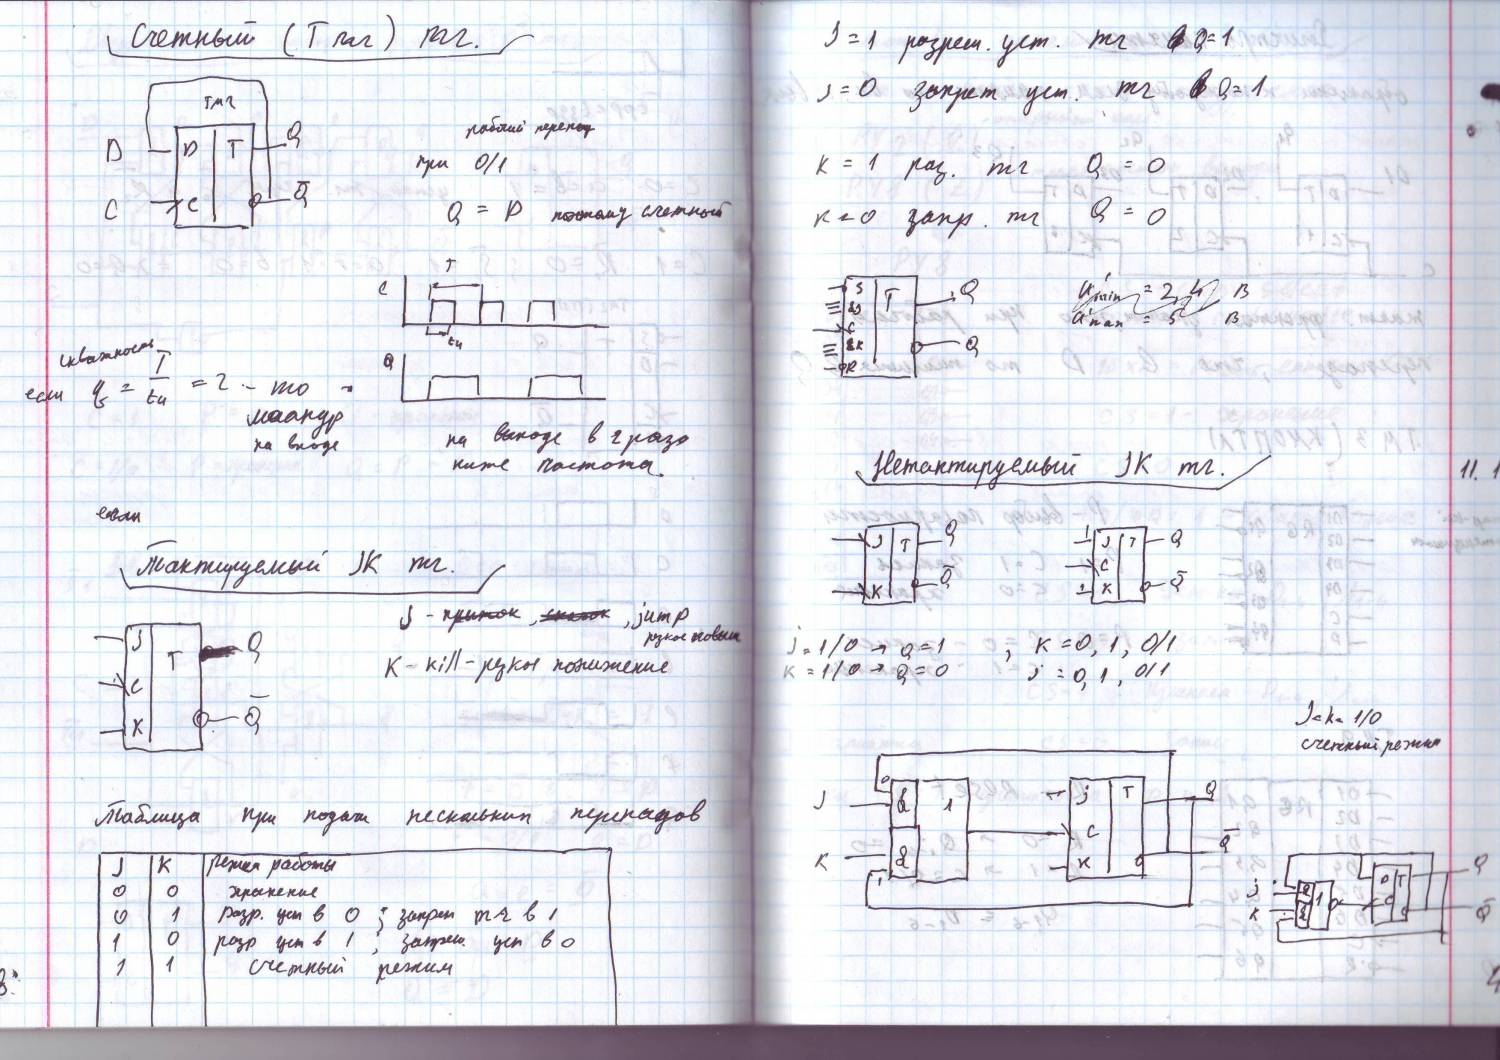 Счетный (Т тг) тг.
тмг
D D T Q
C C Q̅
рабочий перепад
при 0/1
Q = D поэтому счетный
C T
tи
Q
скважность
если q = T/tи = 2 - то
меандр
на входе
на выходе в 2 раза
ниже частота.
если
Тактируемый JK тг.
J T Q
C
K Q̅
J - приток, , jump
резкое повыш
K - kill - резкое понижение
Таблица при подачи нескольких перепадов
J K режим работы
0 0 хранение
0 1 разр. уст в 0 ; запрет тг в 1
1 0 разр уст в 1 ; запрет. уст в 0
1 1 счетный режим
J = 1 разреш. уст. тг Q=1
J = 0 запрет уст. тг в Q=1
K = 1 раз. тг Q = 0
K = 0 запр. тг Q = 0
S T Q
&J
C
&K Q
R
U¹min = 2,4 В
U¹max = 5 В
Нетактируемый JK тг.
11.1
J T Q
K Q̅
1 J T Q
C
1 K Q̅
J = 1/0 → Q = 1 ; K = 0, 1, 0/1
K = 1/0 → Q = 0 j = 0, 1, 0/1
J=K= 1/0
счетный режим
J & 1 "1" J T Q
C
K & K Q̅
j & 1 D T Q
K & C Q̅